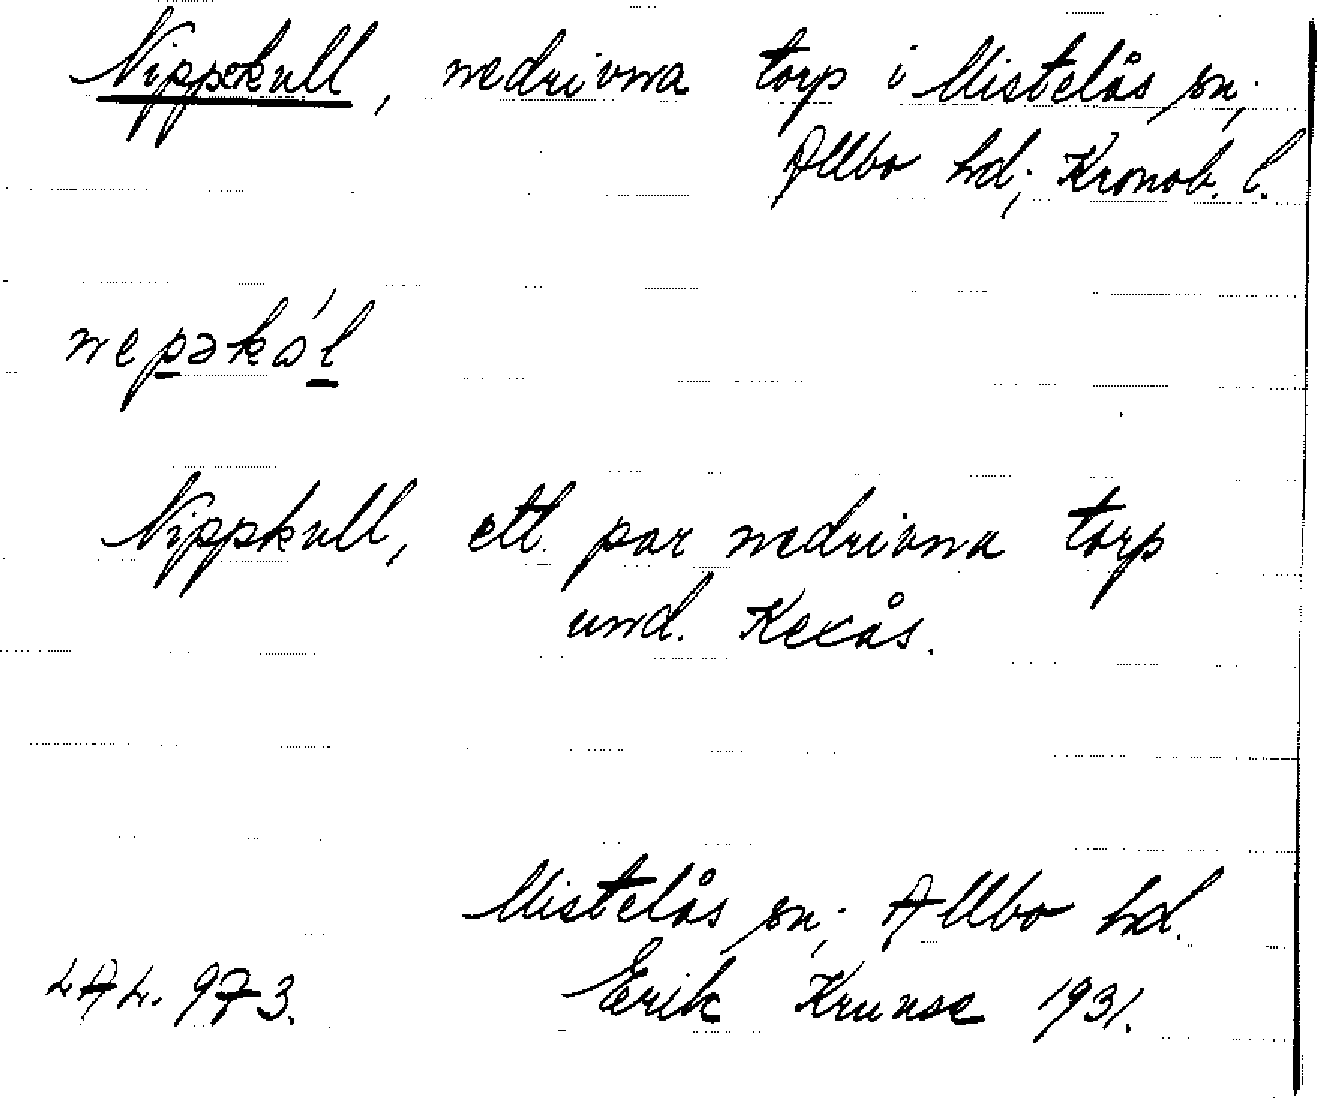 Nippekull, nedrivna torp i Mistelås sn;
Allbo hd; Kronob. l.
nepəkål
Nippkull, ett par nedrivna torp
und. Kexås.
Mistelås sn; Allbo hd.
LAL. 973. Erik Krunse 1931.